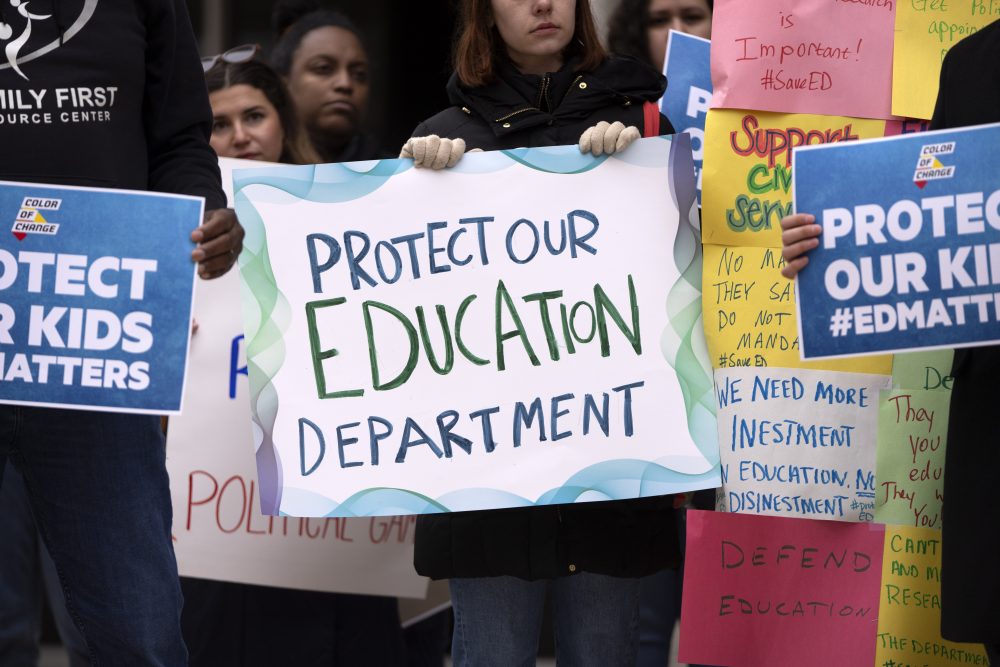 MILY FIRST
OURCE CENTER
COLOR
OF
CHANGE
OTECT
R KIDS
MATTERS
PROTECT OUR
EDUCATION
DEPARTMENT
POLITICAL GAM
is
Important!
#SaveED
Support
civ
serv
NO MA
THEY SA
DO NOT
MANDA
#SaveED
WE NEED MORE
INESTMENT
N EDUCATION. NO
DISINESTMENT
DEFEND
EDUCATION
De
They
you
edu
They w
You
CAN'T
AND M
RESEA
THE DEPARTME
COLOR
OF
CHANGE
PROTEC
OUR KID
#EDMATT